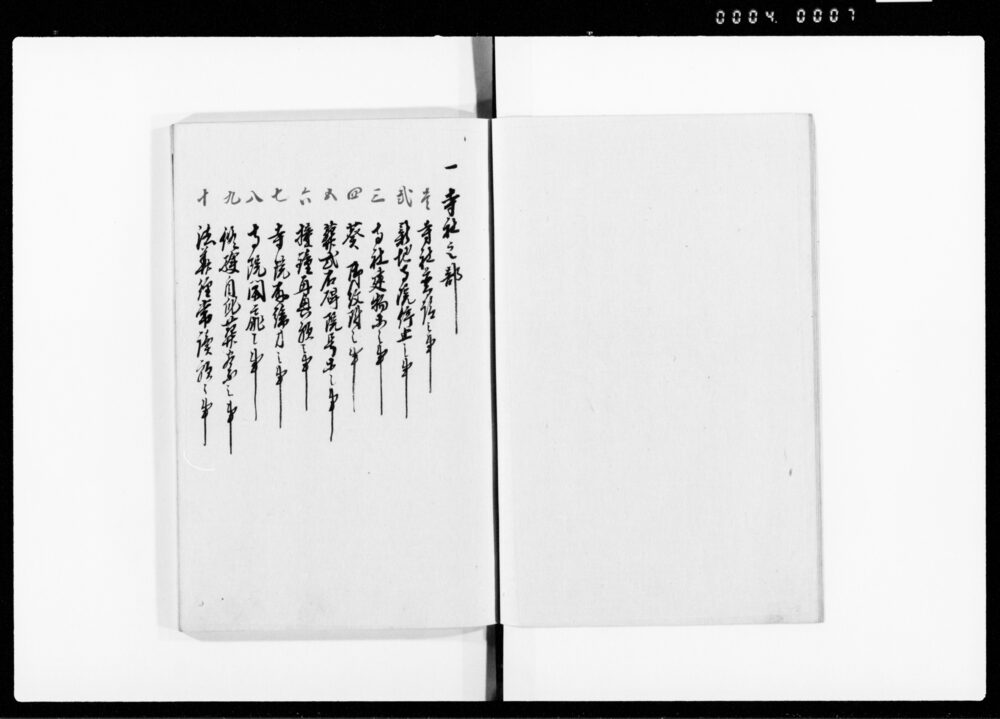 0004. 0007
一 寺社之部
壱 寺社無住之事
弐 新地寺院停止之事
三 寺社建物出之事
四 葵御紋附之事
五 葬式石碑院号出之事
六 撞鐘再興願之事
七 寺院帯刀之事
八 寺院開龕之事
九 修験自身葬祭之事
十 法華経常読願之事